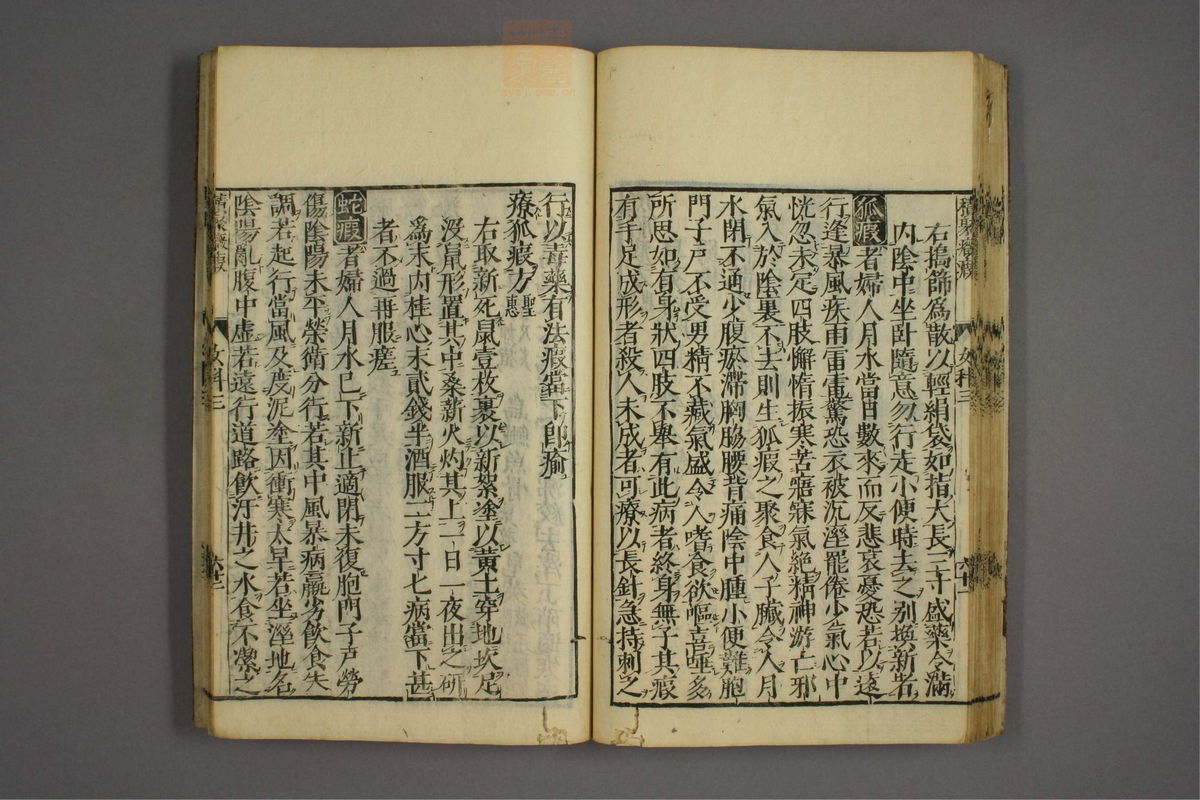 右搗篩爲散以輕絹袋如指大長三寸盛藥令滿
内陰中坐卧隨意勿行走小便時去之别換新者
狐瘕者婦人月水當日數來而反悲哀憂恐若以遠
行逢暴風疾雨雷電驚恐衣被沉溼罷倦少氣心中
恍忽未定四肢懈惰振寒苦寤寐氣絶精神游亡邪
氣入於陰裏不去則生狐瘕之聚食人子臟令人月
水閉不通少腹瘀滯胸脇腰背痛陰中腫小便難胞
門子戸不受男精不藏氣盛令人嗜食欲嘔喜唾多
所思如有身狀四肢不舉有此病者終身無子其瘕
有手足成形者殺人未成者可療以長針急持刺之
行以毒藥有法瘕當下即瘉
療狐瘕方 聖惠
右取新死鼠壹枚裹以新絮塗以黄土穿地坎足
没鼠形置其中桑新火灼其上一日一夜出之研
爲末内桂心末貳錢半酒服二方寸匕病當下甚
者不過再服瘥
蛇瘕者婦人月水已下新止適閉未復胞門子戸勞
傷陰陽未平榮衛分行若其中風暴病羸劣飲食失
調若起行當風及度泥塗因衝寒太早若坐溼地名
陰陽亂腹中虚若遠行道路飲汙井之水食不潔之
女科三